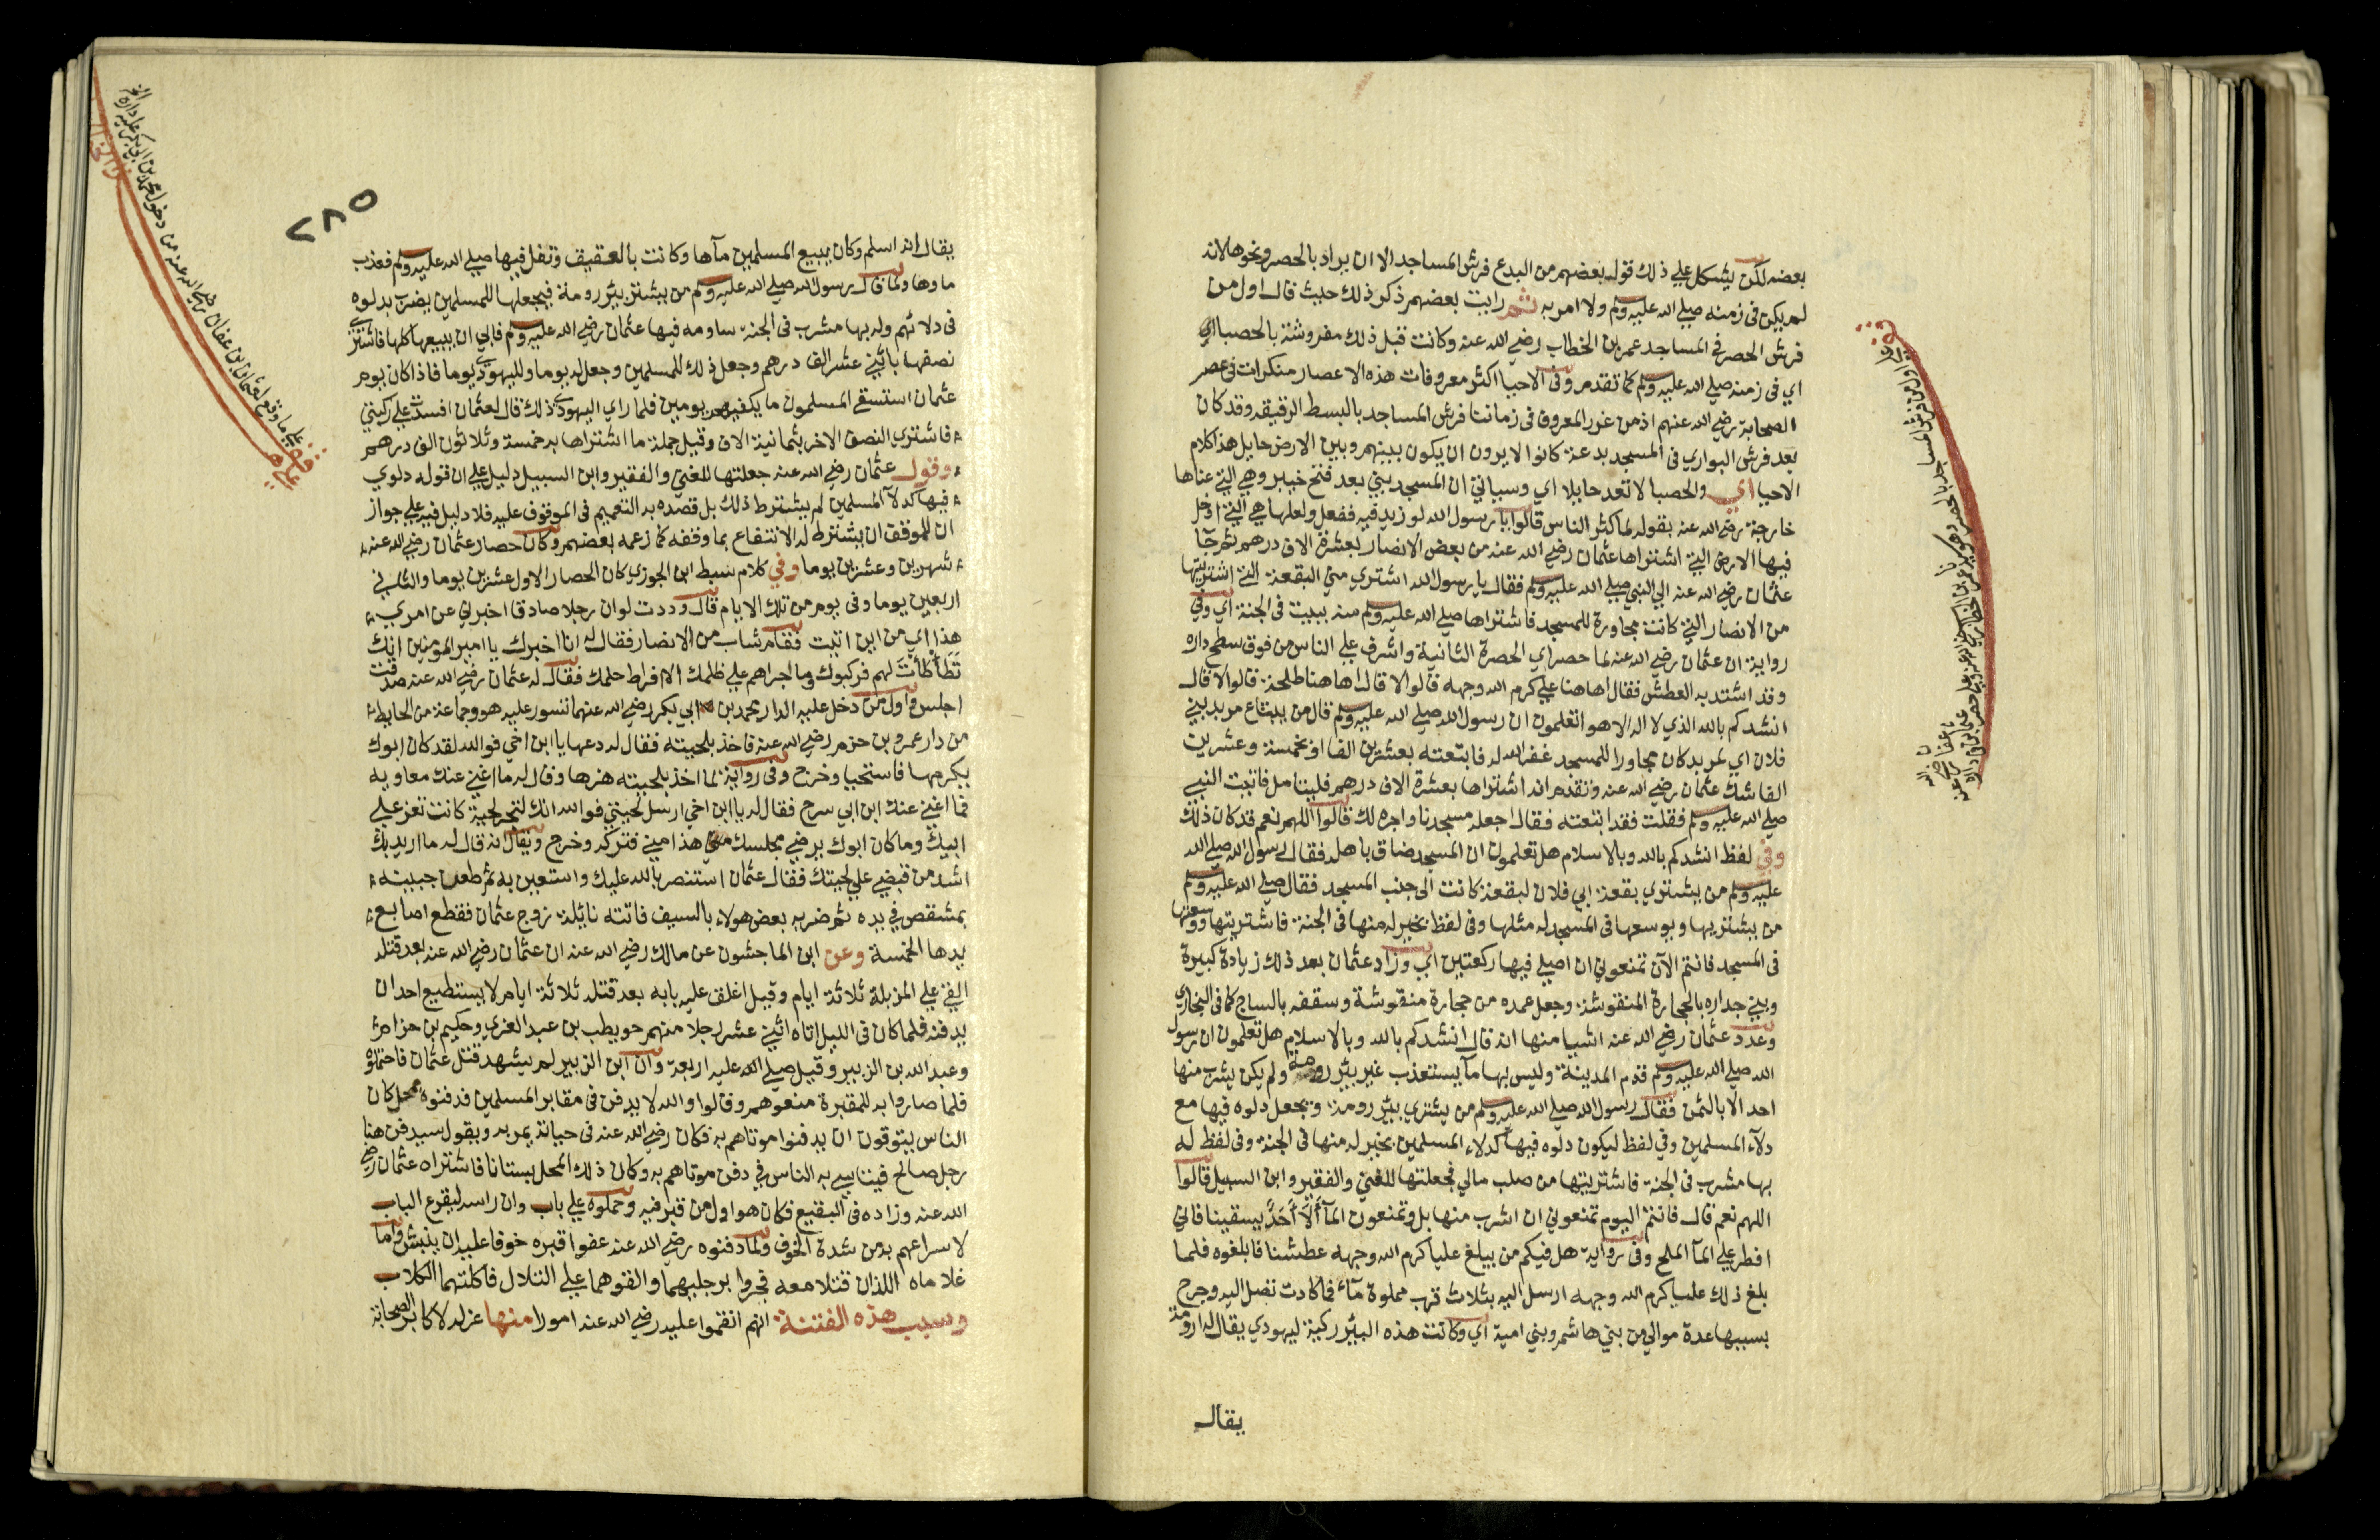 بعضه لكن يشكل علي ذلك قوله بعضهم من البدع فرش المساجد الا ان يراد بالحصر ونحوها لانه
لم يكن في زمنه صلي الله عليه وسلم ولا امر به ثم رايت بعضهم ذكر ذلك حيث قال اول من
فرش الحصر في المساجد عمر بن الخطاب رضي الله عنه وكانت قبل ذلك مفروشة بالحصبا اي
اي في زمنه صلي الله عليه وسلم كما تقدم وفي الاحيا اكثر معروفات هذه الاعصار منكرات في عصر
الصحابة رضي الله عنهم اذ من غرر المعروف في زماننا فرش المساجد بالبسط الرقيقه وقد كان
يعد فرش البواري في المسجد بدعة كانوا لا يرون ان يكون بينهم وبين الارض حايل هذا كلام
الاحيا اي والحصبا لا تعد حايلا اي وسياتي ان المسجد بني بعد فتح خيبر وهي التي عناها
خارجة رضي الله عنه بقوله لما كثر الناس قالوا يا رسول الله لو زيد فيه ففعل ولعلها هي التي ادخل
فيها الارض التي اشتراها عثمان رضي الله عنه من بعض الانصار بعشرة الاف درهم ثم جآ
عثمان رضي الله عنه الي النبي صلي الله عليه وسلم فقال يا رسول الله اشتري مني البقعة التي اشتريتها
من الانصار التي كانت مجاورة للمسجد فاشتراها صلي الله عليه وسلم منه ببيت في الجنة اي وفي
رواية ان عثمان رضي الله عنه لما حصر اي الحصرة الثانية واشرف علي الناس من فوق سطح داره
وقد اشتد به العطش فقال اهاهنا علي كرم الله وجهه قالوا لا قال اهاهنا طلحة قالوا لا قال
انشدكم بالله الذي لا اله الا هو اتعلمون ان رسول الله صلي الله عليه وسلم قال من يبتاع مربد بني
فلان اي لمربد كان مجاورا للمسجد غفر الله له فابتعته بعشرين الفا او بخمسة وعشرين
الفا شك عثمان رضي الله عنه وتقدم انه اشتراها بعشرة الاف درهم فليتامل فاتيت النبي
صلي الله عليه وسلم فقلت فقد ابتعته فقال اجعله مسجدنا واجره لك قالوا اللهم نعم قد كان ذلك
وفي لفظ انشدكم بالله وبالاسلام هل تعلمون ان المسجد ضاق باهله فقال رسول الله صلي الله
عليه وسلم من يشتري بقعة ابي فلان لبقعة كانت الي جنب المسجد فقال صلي الله عليه وسلم
من يشتريها ويوسعها في المسجد له مثلها وفي لفظ بخير له منها في الجنة فاشتريتها ووسعتها
في المسجد فانتم الآن تمنعوني ان اصلي فيها ركعتين اي وزاد عثمان بعد ذلك زيادة كبيرة
وبني جداره بالحجارة المنقوشة وجعل عمده من حجارة منقوشة وسقفه بالساج كما في البخاري
وعدد عثمان رضي الله عنه اشيا منها انه قال انشدكم بالله وبالاسلام هل تعلمون ان رسول
الله صلي الله عليه وسلم قدم المدينة وليس بها مآ يستعذب غير بئر رومة ولم يكن يشرب منها
احد الا بالثمن فقال رسول الله صلي الله عليه وسلم من يشتري بئر رومة ويجعل دلوه فيها مع
دلآء المسلمين وفي لفظ ليكون دلوه فيها كدلاء المسلمين بخير له منها في الجنة وفي لفظ له
بها مشرب في الجنة فاشتريتها من صلب مالي فجعلتها للغني والفقير وابن السبيل قالوا
اللهم نعم قال فانتم اليوم تمنعوني ان اشرب منها بل وتمنعون المآ أَلَا أَحَدٌ يسقينا فاني
افطر علي المآ الملح وفي رواية هل فيكم من يبلغ عليا كرم الله وجهه عطشنا فابلغوه فلما
بلغ ذلك عليا كرم الله وجهه ارسل اليه بثلاث قرب مملوة مآء فما كادت تصل اليه وجرح
بسببها عدة موالي من بني هاشم وبني امية اي وكانت هذه البئر ركية ليهودي يقال له رومة
يقال
قف علي اول من فرش المساجد بالحصر وهو سيدنا عمر بن الخطاب رضي الله عنه وعلي حصر عثمان بن عفان رضي الله عنه في داره
٢٨٥
يقال انه اسلم وكان يبيع المسلمين مآها وكانت بالعقيق وتفل فيها صلي الله عليه وسلم فعذب
ماوها ولما قال رسول الله صلي الله عليه وسلم من يشتر بئر رومة فيجعلها للمسلمين يضرب بدلوه
في دلائهم وله بها مشرب في الجنة ساومه فيها عثمان رضي الله عليه وسلم فابي ان يبيعها كلها فاشتري
نصفها باثني عشر الف درهم وجعل ذلك للمسلمين وجعل له يوما ولليهودي يوما فاذا كان يوم
عثمان استسقي المسلمون ما يكفيهم يومين فلما راي اليهودي ذلك قال لعثمان افسدت علي ركيتي
فاشتري النصف الاخر بثمانية الاف وقيل جملة ما اشتراها به خمسة وثلاثون الف درهم
وقول عثمان رضي الله عنه جعلتها للغني والفقير وابن السبيل دليل علي ان قوله دلوي
فيها كدلآ المسلمين لم يشترط ذلك بل قصده به التعميم في الموقوف عليه فلا دليل فيه علي جواز
ان للموقف ان يشترط له الانتفاع بما وقفه كما زعمه بعضهم وكان حصار عثمان رضي الله عنه
شهرين وعشرين يوما وفي كلام سبط ابن الجوزي كان الحصار الاول عشرين يوما والثاني
اربعين يوما وفي يوم من تلك الايام قال وددت لو ان رجلا صادقا اخبرني عن امري
هذا اي من اين اتيت فقام شاب من الانصار فقال له انا اخبرك يا امير المومنين انك
تَطَأْطَأْتَ لهم فركبوك وما اجراهم علي ظلمك الا افراط حلمك فقال له عثمان رضي الله عنه صدقت
اجلس واول من دخل عليه الدار محمد بن ابي بكر رضي الله عنهما تسور عليه هو وجماعة من الحايط
من دار عمرو بن حزم رضي الله عنه فاخذ بلحيته فقال له دعها يا ابن اخي فوالله لقد كان ابوك
يكرمها فاستحيا وخرج وفي رواية لما اخذ بلحيته هزها وقال له ما اغني عنك معاوية
فما اغني عنك ابن ابي سرح فقال له يا ابن اخي ارسل لحيتي فوالله انك لتجر لحية كانت تعز علي
ابيك وما كان ابوك يرضي مجلسك هذا مني فتركه وخرج ويقال انه قال له ما اريد بك
اشد من قبضي علي لحيتك فقال عثمان استنصر بالله عليك واستعين به ثم طعن جبينه
بمشقص في يده ثم ضربه بعض هولاء بالسيف فاتته نايلة زوج عثمان فقطع اصابع
يدها الخمسة وعن ابن الماجشون عن مالك رضي الله عنه ان عثمان رضي الله عنه بعد قتله
القي علي المزبلة ثلاثة ايام وقيل اغلق عليه بابه بعد قتله ثلاثة ايام لا يستطيع احد ان
يدفنه فلما كان في الليل اتاه اثني عشر رجلا منهم حويطب بن عبد العزي وحكيم بن حزام
وعبد الله بن الزبير وقيل صلي الله عليه اربعة وان ابن الزبير لم يشهد قتل عثمان فاحتملوه
فلما صاروا به للمقبرة منعوهم وقالوا والله لا يدفن في مقابر المسلمين فدفنوه بمحل كان
الناس يتوقون ان يدفنوا موتاهم به فكان رضي الله عنه في حياته يمر به ويقول سيدفن هنا
رجل صالح فيتاسي به الناس في دفن موتاهم به وكان ذلك المحل بستانا فاشتراه عثمان رضي
الله عنه وزاده في البقيع فكان هو اول من قبر فيه وحملوه علي باب وان راسه ليقرع الباب
لاسراعهم به من شدة الخوف ولما دفنوه رضي الله عنه عفوا قبره خوفا عليه ان ينبش واما
غلاماه اللذان قتلا معه فجروا برجليهما والقوهما علي التلال فاكلتهما الكلاب
وسبب هذه الفتنة انهم انقموا عليه رضي الله عنه امورا منها عزله لاكابر الصحابة
قف علي ما وقع لعثمان بن عفان رضي الله عنه من دخول محمد بن ابي بكر عليه داره